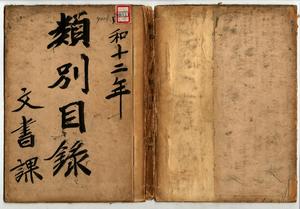 和十二年
類別目錄
文書課